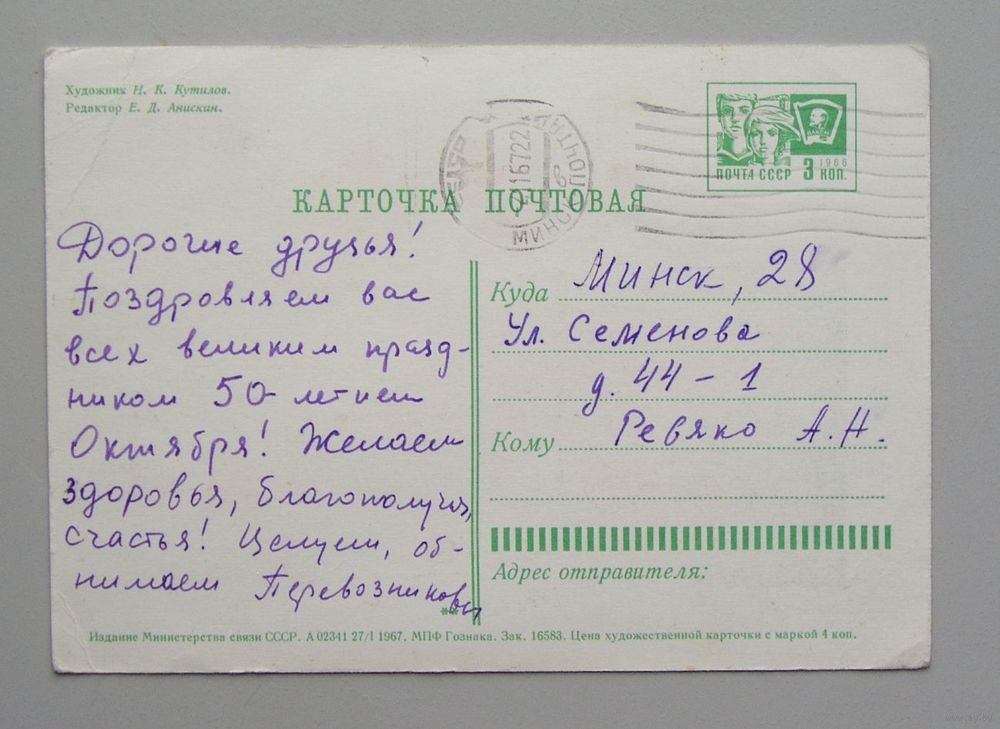 Художник Н. К. Кутилов.
Редактор Е. Д. Анискин.
ПОЧТА СССР 3 КОП.
1966
КАРТОЧКА ПОЧТОВАЯ
Дорогие друзья!
Поздровляем вас
всех великим празд-
ником 50-летием
Октября! Желаем
здоровья, благополучия,
счастья! Целуем, об-
нимаем Перевозниковы
Куда Минск, 28
Ул. Семенова
д. 44-1
Кому Ревяко А.Н.
Адрес отправителя:
Издание Министерства связи СССР. А 02341 27/I 1967. МПФ Гознака. Зак. 16583. Цена художественной карточки с маркой 4 коп.